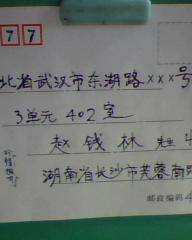 7 7
北省武汉市东湖路×××号
3单元 402室
赵 钱 林
湖南省长沙市芙蓉南路
邮政编码 4